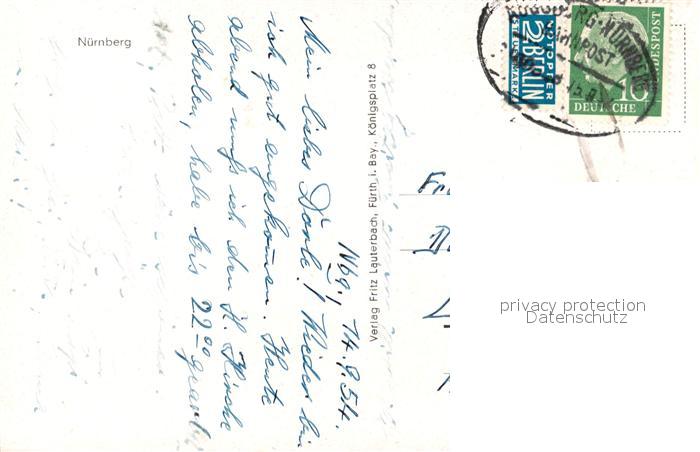 Nürnberg
Nbg., 14.9.54.
Mein liebes Dorle! Wieder bin
ich gut angekommen. Heute
abend muß ich den H. Kirche
abholen, habe bis 22⁰⁰
Verlag Fritz Lauterbach, Fürth i. Bay., Königsplatz 8
NOTOPFER
2 BERLIN
STEUERMARKE
DEUTSCHE
BUNDESPOST
10
NÜRNBERG
BAHNPOST
Fr
privacy protection
Datenschutz